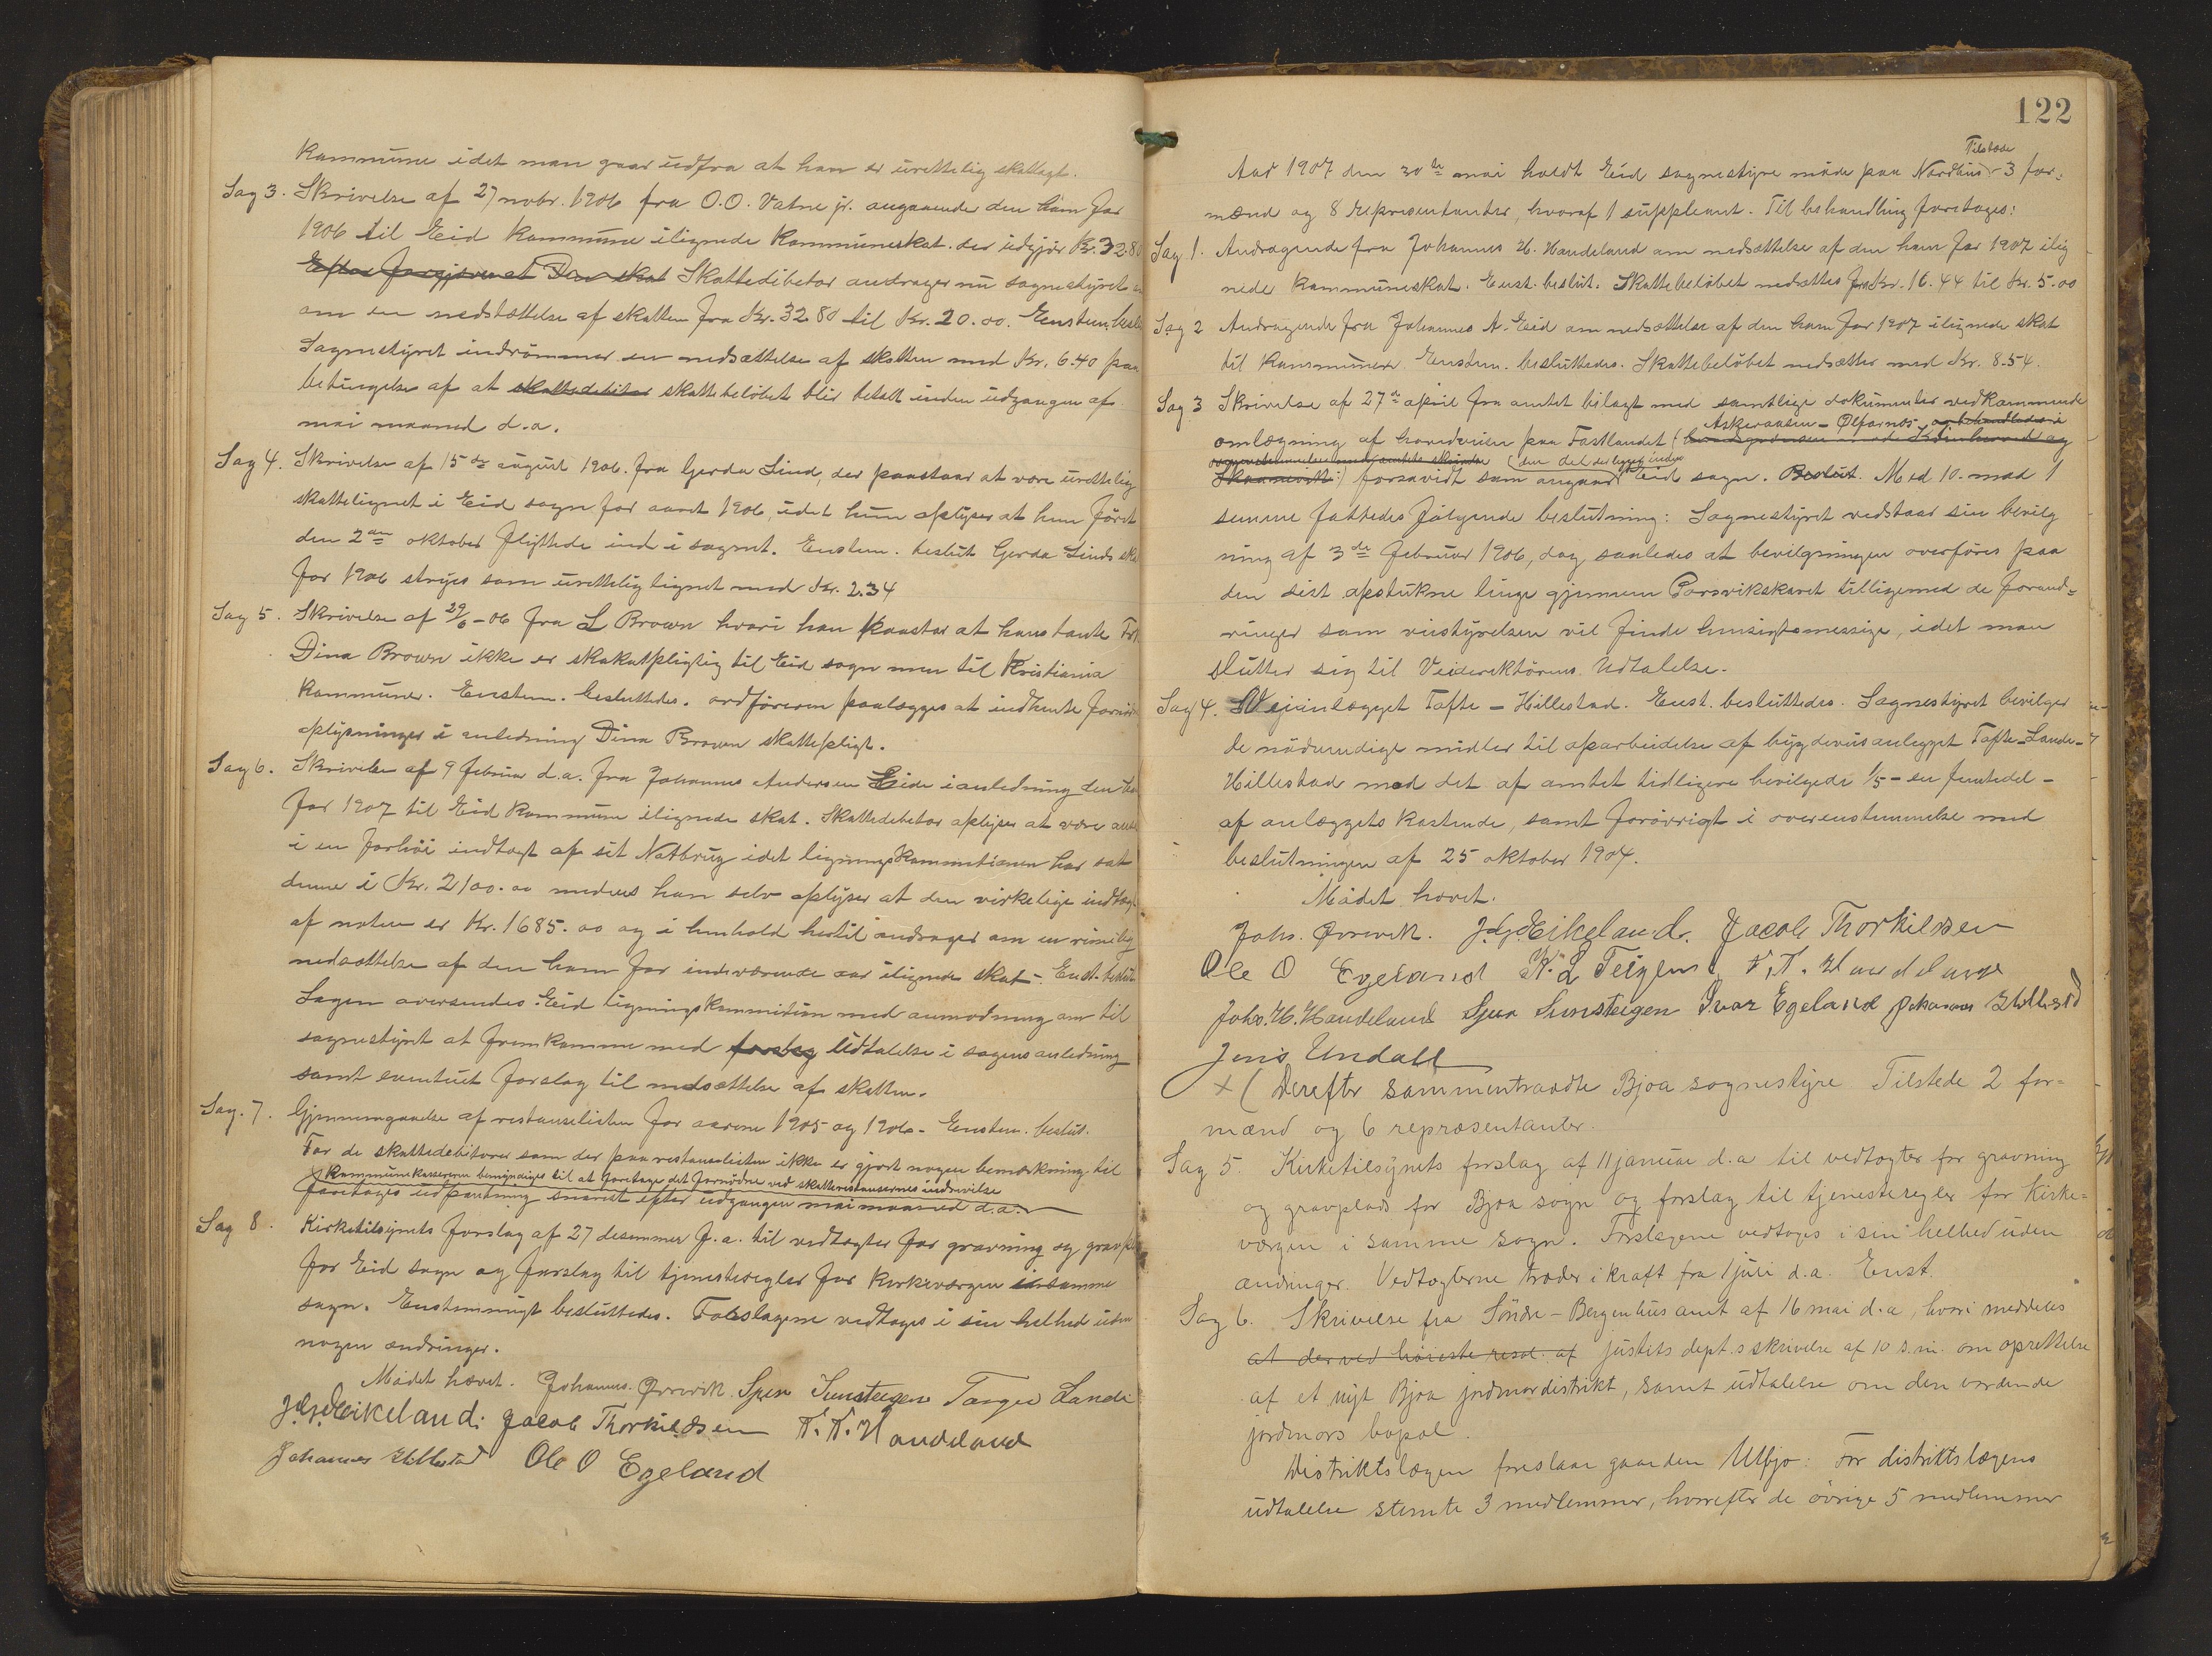 kommune idet man gaar udfra at han er urettelig skatlagt.
Sag 3. Skrivelse af 27 novbr. 1906 fra O.O. Vatne jr. angaaende den ham for
1906 til Eid kommune ilignede kommuneskat. der udgjør Kr. 32.80
Skattedebitor andrager nu sognestyret
om en nedsættelse af skatten fra Kr. 32.80 til Kr. 20.00. Enstem. beslut
Sognestyret indrømmer en nedsættelse af skatten med Kr. 6.40 paa
betingelse af at skattedebitor skattebeløbet blir betalt inden udgangen af
mai maaned d.a.
Sag 4. Skrivelse af 15de august 1906. fra Gerda Lind, der paastaar at være urettelig
skattelignet i Eid sogn for aaret 1906, idet hun oplyser at hun først
den 2den oktober flyttede ind i sognet. Enstem. beslut Gerda Linds skat
for 1906 stryges som urettelig lignet med Kr. 2.34
Sag 5. Skrivelse af 29/6-06 fra L Brown hvori han paastar at hans tante Frk
Dina Brown ikke er skakatpligtig til Eid sogn men til Kristiania
kommune. Enstem. besluttedes. ordføreren paalægges at indhente fornødne
oplysninger i anledning Dina Brown skattepligt.
Sag 6. Skrivelse af 9 februar d.a. fra Johannes Andersen Eide i anledning den ham
for 1907 til Eid kommune ilignede skat. Skattedebitor oplyser at være ansat
i en forhøi indtægt af sit Notbrug idet ligningskommitionen har sat
denne i Kr. 2100.00 medens han selv oplyser at den virkelige indtægt
af noten er Kr. 1685.00 og i henhold hertil andrager om en rimelig
nedsættelse af den ham for indeværende aar ilignede skat - Enst. beslut
Sagen oversendes Eid ligningskommition med anmodning om til
sognestyret at fremkomme med forslag Udtalelse i sagens anledning
samt eventuet forslag til nedsættelse af skatten.
Sag. 7. Gjennemgaaelse af restanselisten for aarene 1905 og 1906. Enstem. beslut.
For de skattedebitorer som der paa restanselisten ikke er gjort nogen bemærkning til
Kommunekassereren bemyndiges til at foretage det fornødne ved skatterestansernes inddrivelse
foretages udpantning snarest efter udgangen mai maaned d.a.
Sag 8. Kirketilsynets forslag af 27 desemmer f.a. til vedtægter for gravning og gravpl
for Eid sogn og forslag til tjenesteregler for kirkeværgen i samme
sogn. Enstemmigt besluttedes. Forslagene vedtages i sin helhed uden
nogen ændringer.
Mødet hævet. Johannes Ørrevik Sjur Sunsteigen Torger Lande
J.G. Eikeland. Jacob Thorkildsen T. T. Handeland
Johannes Hillestad Ole O Egeland
122
Tilstede
Aar 1907 den 30te mai holdt Eid sognestyre møde paa Nordhus 3 for-
mænd og 8 repræsentanter, hvoraf 1 suppleant. Til behandling foretoges:
Sag 1. Andragende fra Johannes H. Handeland om nedsættelse af den ham for 1907 ilig
nede kommuneskat. Enst. beslut. Skattebeløbet nedsættes fra Kr. 16.44 til Kr. 5.00
Sag 2 Andragende fra Johannes A. Eid om nedsættelse af den ham for 1907 ilignede skat
til kommunen. Enstem. besluttedes. Skattebeløbet nedsættes med Kr. 8.54.
Sag 3 Skrivelse af 27de april fra amtet bilagt med samtlige dokumenter vedkommende
Askevaagen - Ølfarnes
omlægning af hovedveien paa Fastlandet
(den del der ligger inden
Skaanevik) forsavidt som angaar Eid sogn. Beslut. Med 10 mod 1
semme fattedes følgende beslutning: Sognestyret vedstaar sin bevilg
ning af 3de februar 1906, dog saaledes at bevilgningen overføres paa
den sist opstukne linje gjennem Porsvikskaret tilligemed de forand-
ringer som veistyrelsen vil finde hensigtsmessige, idet man
slutter sig til Veidirektørens Udtalelse.
Sag 4. Veianlægget Tofte - Hillestad. Enst. besluttedes. Sognestyret bevilger
de nødvendige midler til oparbeidelse af bygdeveisanlegget Tofte-Lande-
Hillestad mod det af amtet tidligere bevilgede 1/5 - en femtedel -
af anlæggets kostende, samt forøvrigt i overenstemmelse med
beslutningen af 25 oktober 1904.
Mødet hævet.
Johs. Ørrevik. J.G. Eikeland. Jacob Thorkildsen
Ole O Egeland K. L Teigen T. T. Handeland
Johs. H. Handeland Sjur Sunsteigen Ivar Egeland Johannes Hillestad
Jens Undall
+ ( Derefter sammentraadte Bjoa sognestyre Tilstede 2 for-
mænd og 6 repræsentanter.
Sag 5. Kirketilsynets forslag af 11 januar d.a til vedtægter for gravning
og gravplads for Bjoa sogn og forslag til tjenesteregler for Kirke-
værgen i samme sogn. Forslagene vedtoges i sin helhed uden
ændringer. Vedtægterne træder i kraft fra 1 juli d.a. Enst.
Sag 6. Skrivelse fra Søndre-Bergenhus amt af 16 mai d.a, hvori meddeles
at der ved høieste resol. af justits dept.s skrivelse af 10 s.m. om oprettelse
af et nyt Bjoa jordmordistrikt, samt udtalelse om den vordende
jordmors bopæl.
Distriktslægen foreslaar gaarden Ulbjo: For distriktslægens
udtalelse stemte 3 medlemmer, hvorefter de øvrige 5 medlemmer